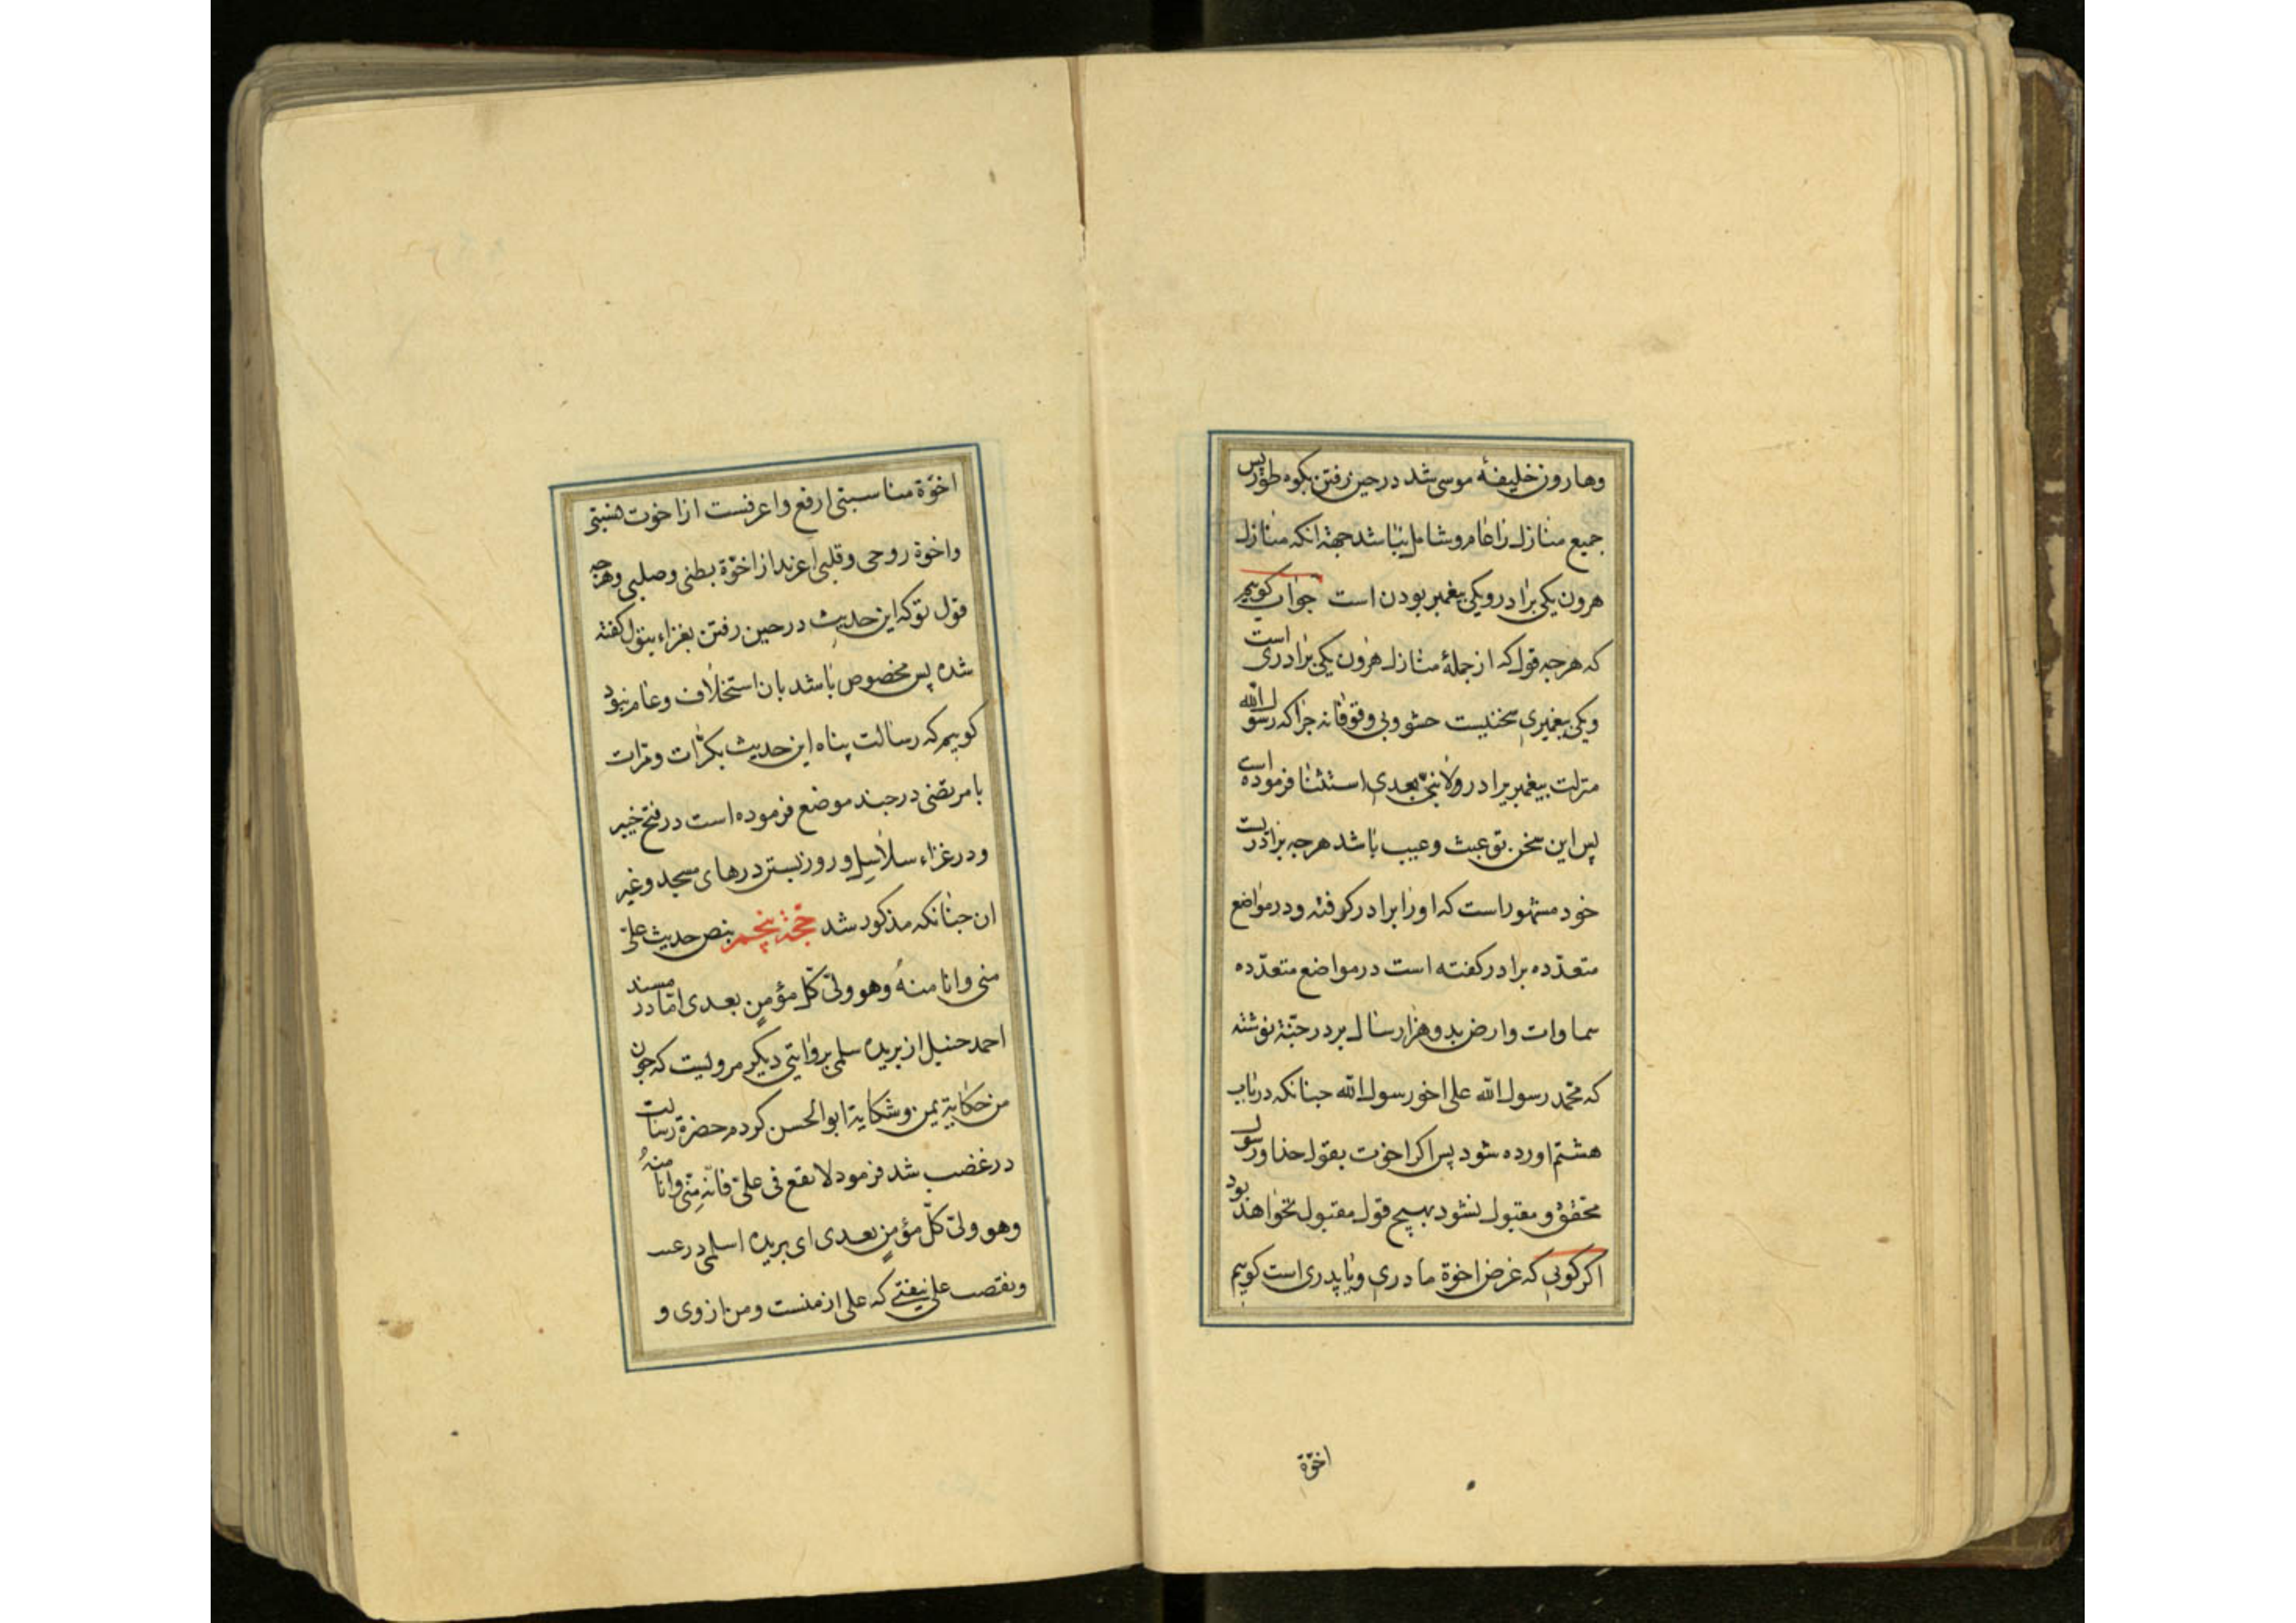 وهارون خلیفهٔ موسی شد در حین رفتن بکوه طور پس
جمیع منازل را عام و شامل نباشد جهة انکه منازل
هرون یکی برادر ویکی پیغمبر بودن است جواب کوییم
که هرجه قول که از جملهٔ منازل هرون یکی برادری است
ویکی پیغمبری سخنیست حشو وبی وقوفانه جرا که رسول الله
منزلت پیغمبر برادر ولا نبی بعدی استثنا فرموده است
پس این سخن تو عبث وعیب باشد هرجه برادریست
خود مشهور است که اورا برادر کرفته ودر مواضع
متعدده برادر کفته است در مواضع متعدده
سماوات وارض بدو هزار سال بر در جنّة نوشته
که محمّد رسول الله علی اخو رسول الله جنانکه در باب
هشتم اورده شود پس اکر اخوت بقول خدا ورسول
محقق و مقبول نشود بهیچ قول مقبول نخواهد بود
اکر کویی که غرض اخوة مادری ویا پدری است کوییم
اخوّة
اخوّة مناسبتی ارفع واعرفست از اخوت نسبتی
واخوة روحی وقلبی اعزند از اخوّة بطنی وصلبی وهرجه
قول تو که این حدیث در حین رفتن بغزاء بتوك کفته
شده پس مخصوص باشد بان استخلاف وعام نبود
کوییم که رسالت پناه این حدیث بکرّات ومرّات
با مرتضی در جند موضع فرموده است در فتح خیبر
ودر غزاء سلاسل وروز بستن درهای مسجد وغیر
ان جنانکه مذکور شد حجّة پنجم بنص حدیث علیّ
منی وانا منهُ وهو ولیّ کلّ مؤمنٍ بعدی امّا در مسند
احمد حنبل از بریده سلمی بروایتی دیکر مرویست که جون
من حکایة یمن وشکایة ابو الحسن کردم حضرة رسالت
در غضب شد فرمود لا تقع فی علیّ فانّه مِنّی وانا منهُ
وهو ولیّ کلّ مؤمنٍ بعدی ای بریده اسلمی در عیب
ونقص علی نیفتی که علی از منست ومن از وی و